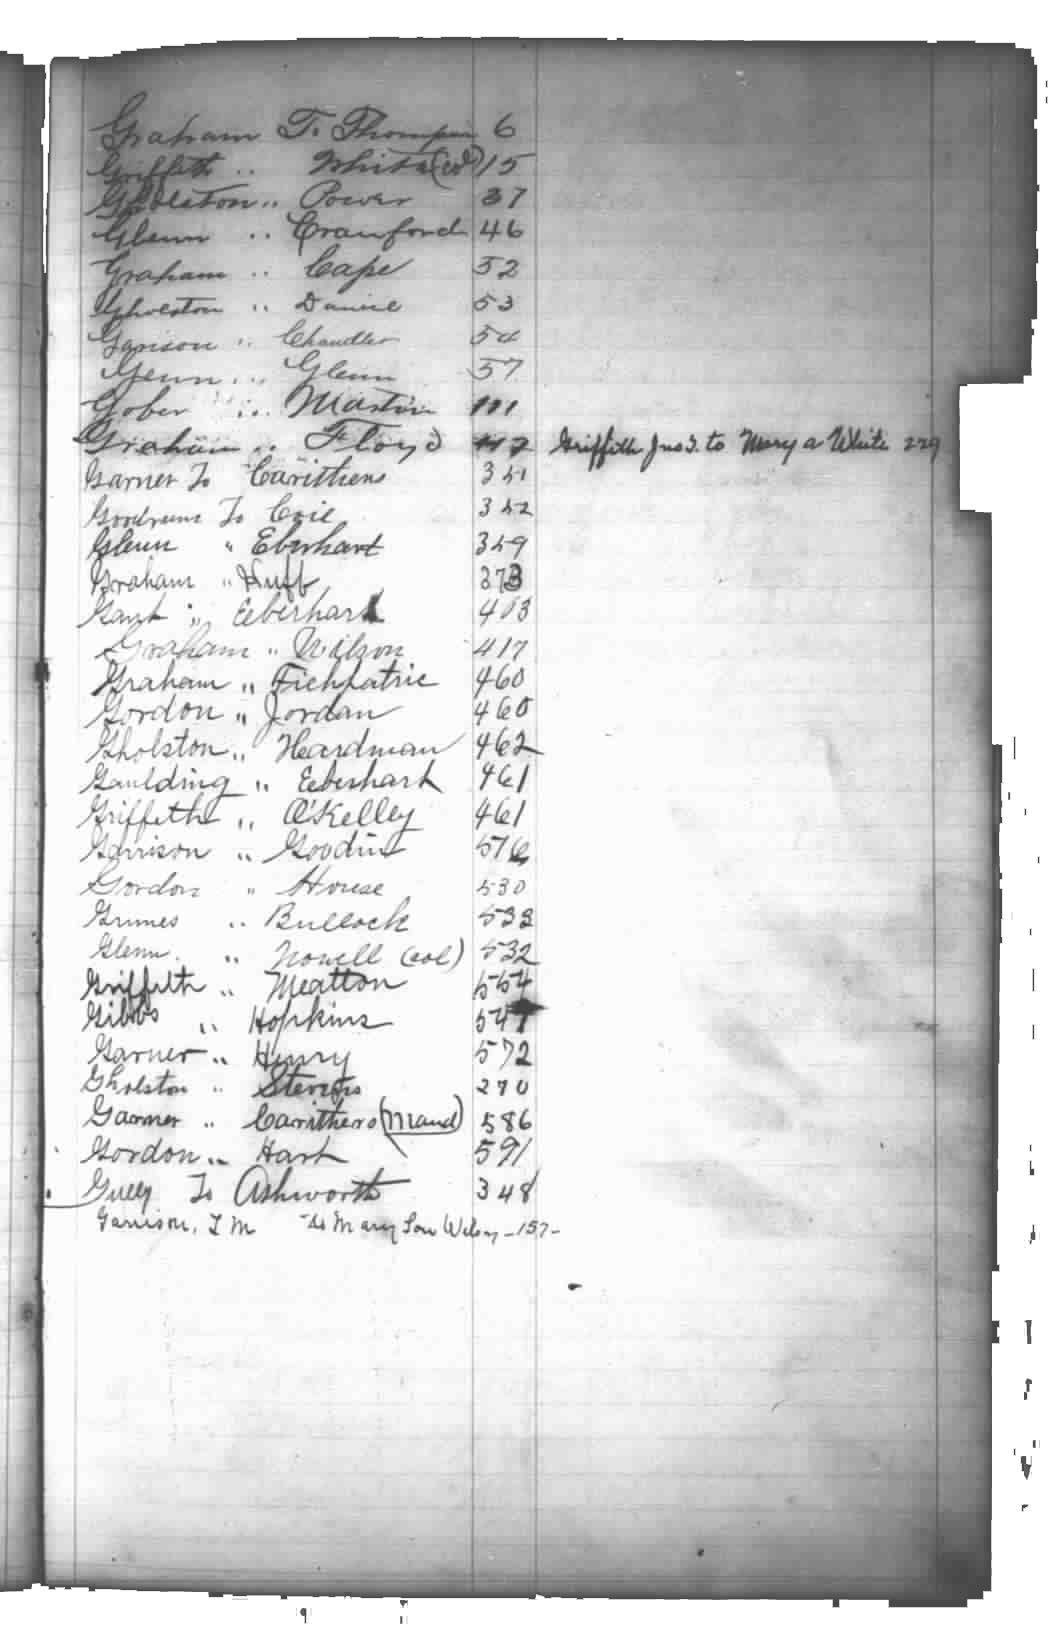 Graham To Thompson 6
Griffeth " White (col) 15
Gholston " Power 37
Glenn " Crawford 46
Graham " Cape 52
Gholston " Daniel 53
Garison " Chandler 54
Glenn " Glenn 57
Gober " Martin 111
Graham " Floyd 112 Griffeth Jno T. to Mary A White 229
Garner To Carithers 351
Goodrum To Coil 352
Glenn " Eberhart 359
Graham " Huff 373
Gant " Eberhart 403
Graham " Wilson 417
Graham " Fichpatric 460
Gordon " Jordan 460
Gholston " Hardman 462
Gaulding " Eberhart 461
Griffeth " O'Kelley 461
Garrison " Goodin 516
Gordon " House 530
Grimes " Bullock 533
Glenn " Nowell (col) 532
Griffeth " Meatton 554
Gibbs " Hopkins 547
Garner " Henry 572
Gholston " Stevens 270
Garner " Carithers (Maud) 586
Gordon " Hart 591
Gully To Ashworth 348
Garrison, T M to Mary Lou - 157 -